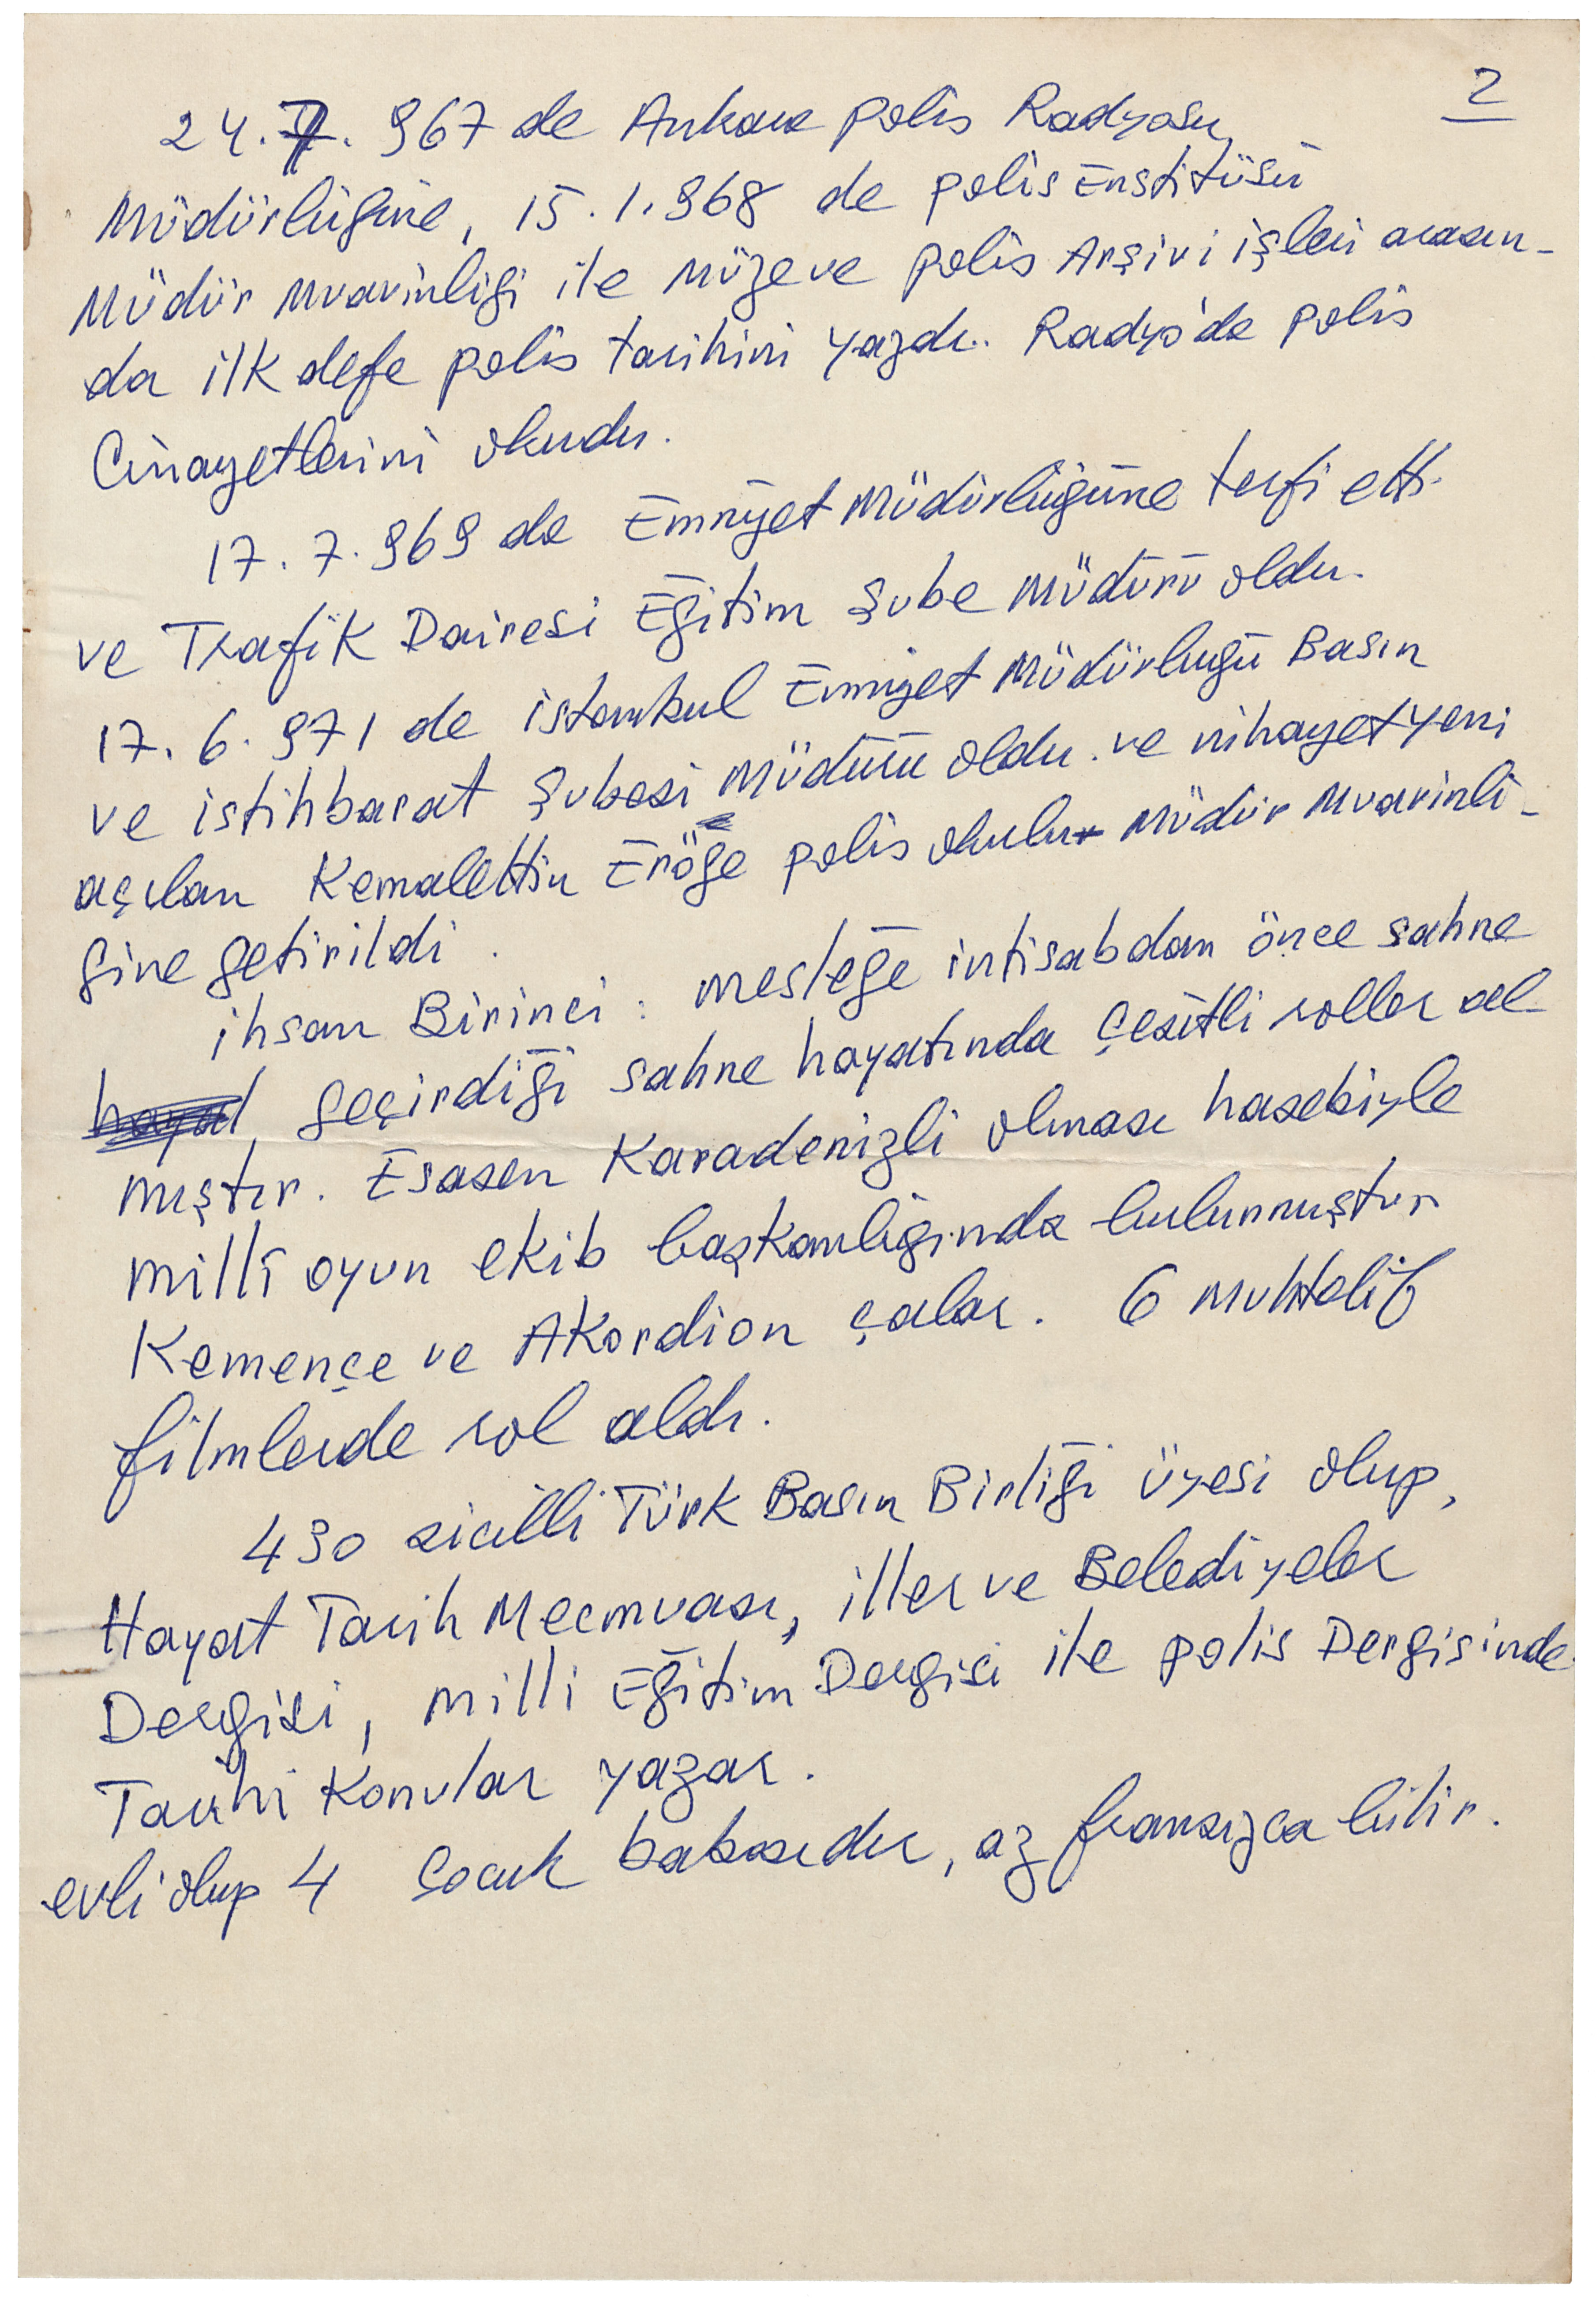 2
24.7.967 de Ankara polis Radyosu
Müdürlüğüne, 15.1.968 de polis Enstitüsü
Müdür muavinliği ile müze ve polis Arşivi işleri arasın-
da ilk defe polis tarihini yazdı.. Radyo'da polis
Cinayetlerini okudu.
17.7.969 da Emniyet Müdürlüğüne terfi etti.
ve Trafik Dairesi Eğitim Şube Müdürü oldu.
17.6.971 de istanbul Emniyet Müdürlüğü Basın
ve istihbarat Şubesi Müdürü oldu. ve nihayet yeni
açılan Kemalettin Eröge polis okulu Müdür muavinli-
ğine getirildi.
ihsan Birinci: mesleğe intisabdan önce sahne
geçirdiği sahne hayatında çeşitli roller al-
mıştır. Esasen Karadenizli olması hasebiyle
millî oyun ekib başkanlığında bulunmuştur
Kemençe ve Akordion çalar. 6 muhtelif
filmlerde rol aldı.
430 sicilli Türk Basın Birliği üyesi olup,
Hayat Tarih Mecmuası, iller ve Belediyeler
Dergisi, milli Eğitim Dergisi ile polis Dergisinde
Tarihi Konular yazar.
evli olup 4 Çocuk babasıdır, az fransızca bilir.